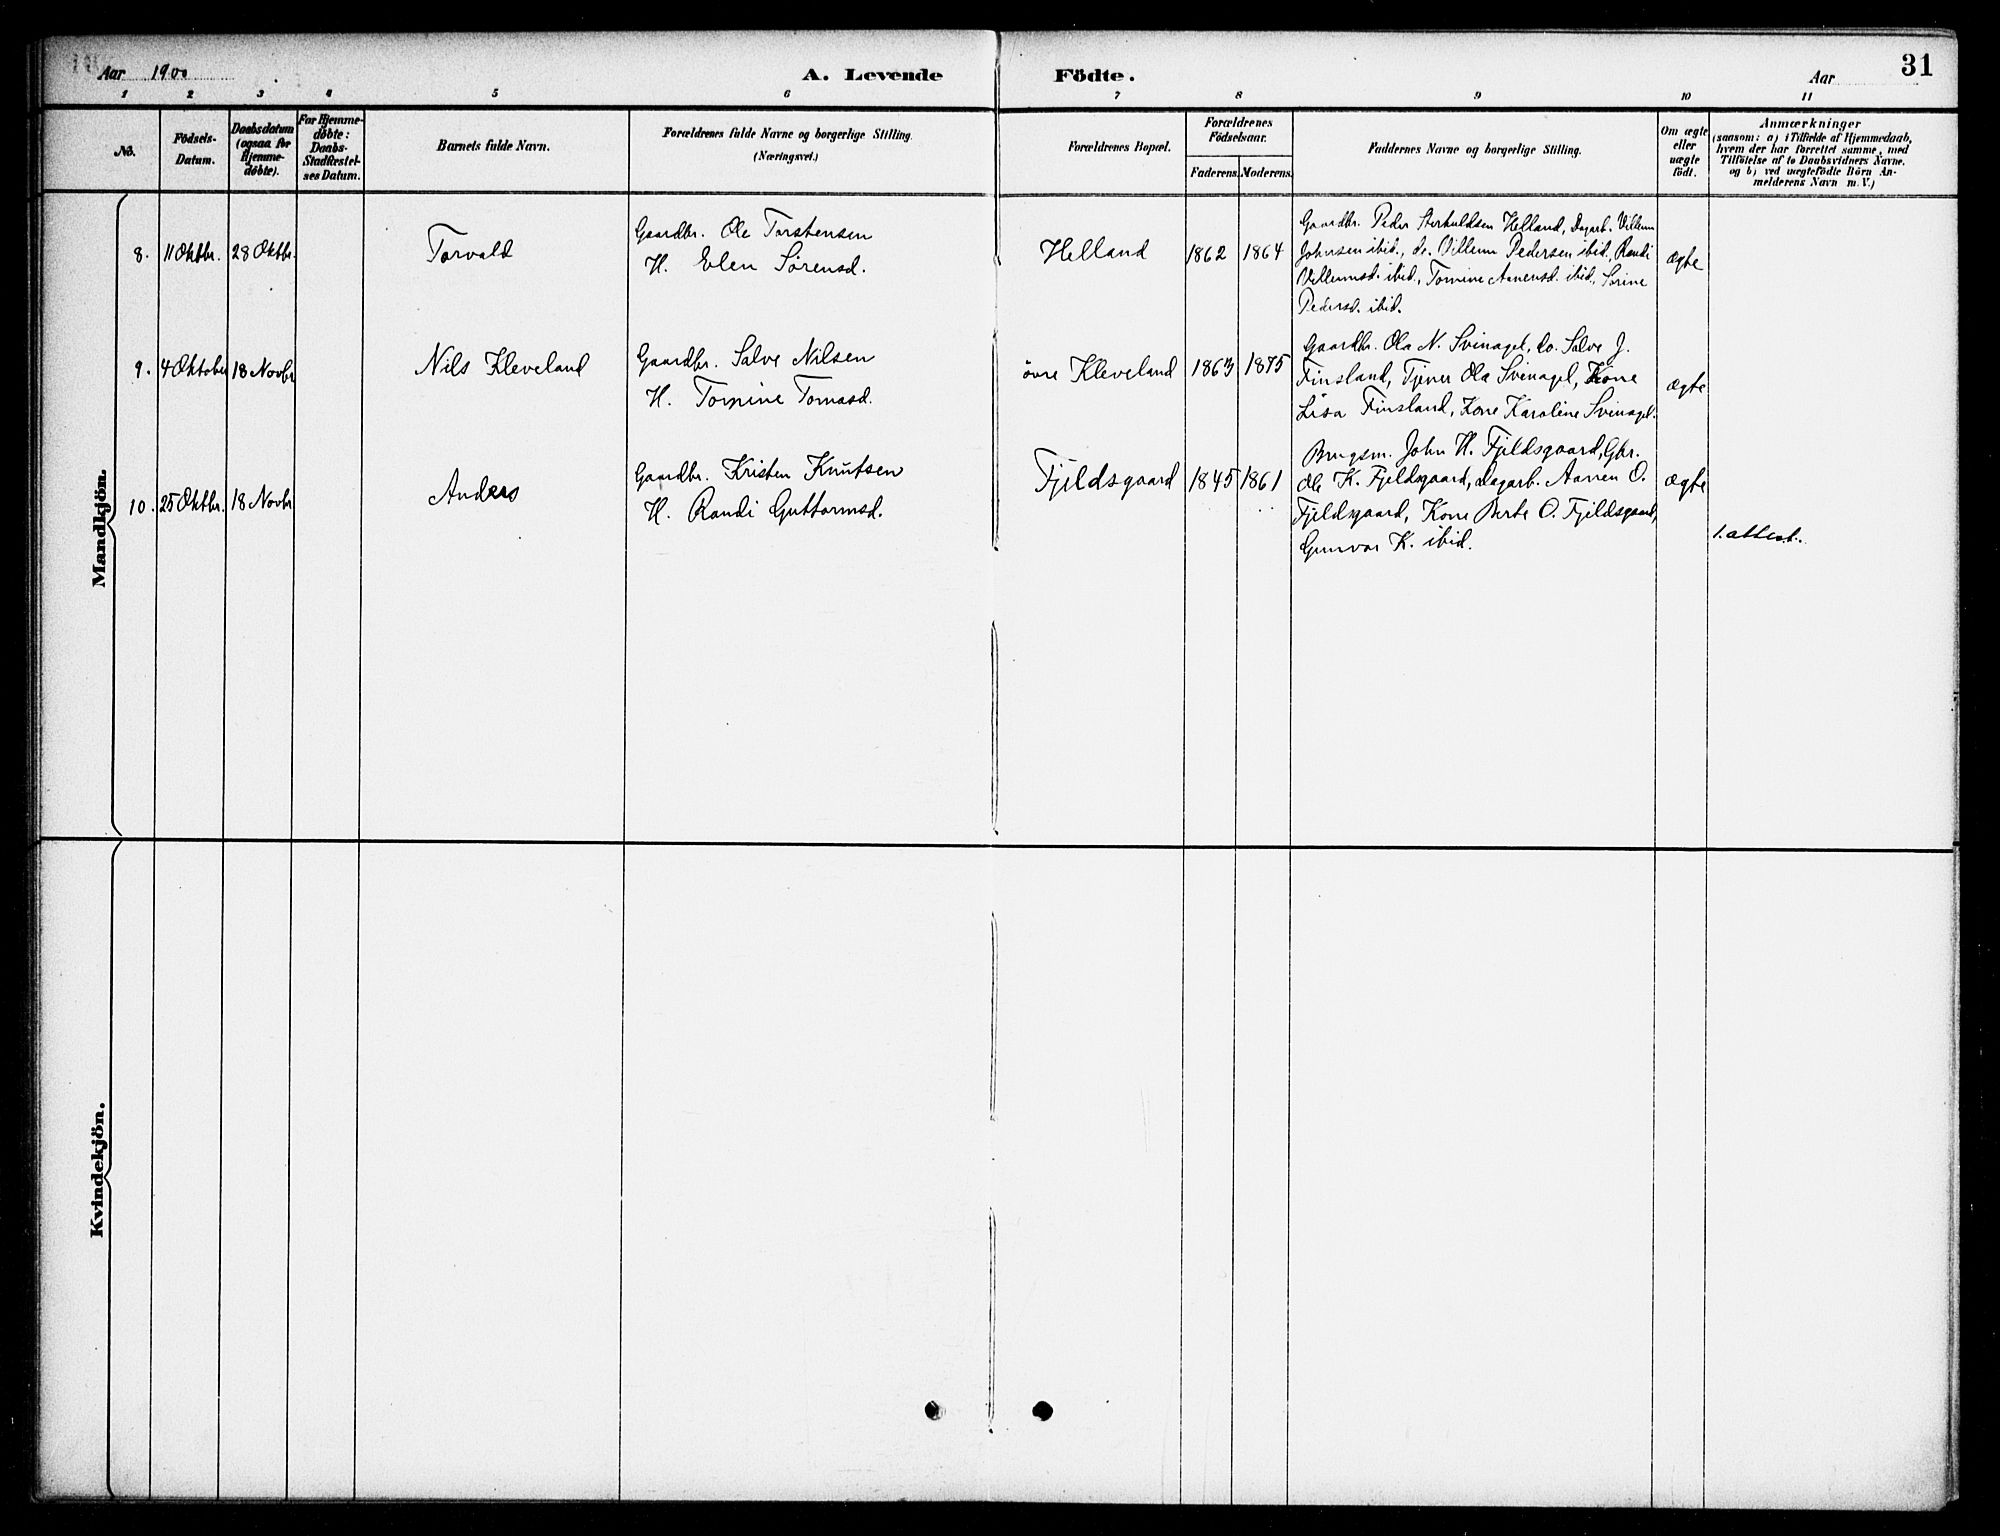 Aar 1900
A. Levende Födte.
Aar
31
1 2 3 4 5 6 7 8 9 10 11
No.
Födsels-Datum.
Daabsdatum (ogsaa for Hjemmedöbte).
For Hjemmedöbte: Daabs-Stadfæstelses Datum.
Barnets fulde Navn.
Forældrenes fulde Navne og borgerlige Stilling.
(Næringsvei.)
Forældrenes Bopæl.
Forældrenes Födselsaar.
Faderens. Moderens.
Faddernes Navne og borgerlige Stilling.
Om ægte eller uægte födt.
Anmærkninger
(saasom: a) i Tilfælde af Hjemmedaab,
hvem der har forrettet samme, med
Tilföielse af to Daabsvidners Navne.
og b) ved uægtefödte Börn Anmelderens Navn m. V.)
Mandkjön.
8. 11 Oktbr. 28 Oktbr. Torvald
Gaardbr. Ole Torstensen
H. Elen Sørensd.
Helland 1862 1864
Gaardbr. Peder Helland, Dagarb. Villum
Johnsen ibid., do. Villum Pedersen ibid., Randi
Villumsd. ibid., Tomine Aanensd. ibid., Sørine
Pedersd. ibid.
ægte
9. 4 Oktober 18 Novbr Nils Kleveland
Gaardbr. Salve Nilsen
H. Tomine Tomasd.
övre Kleveland 1863 1875
Gaardbr. Ola N. Svinagel, do. Salve J.
Finsland, Tjener Ola Svinagel, Kone
Lisa Finsland, Kone Karoline Svinagel.
ægte
10. 25 Oktbr. 18 Novbr Anders
Gaardbr. Kristen Knutsen
H. Randi Guttormsd.
Fjeldsgaard 1845 1861
Brugsm. John H. Fjeldsgaard, Gbr.
Ole K. Fjeldsgaard, Dagarb. Aanen O.
Fjeldsgaard, Kone Berte O. Fjeldsgaard,
Gunvor K. ibid.
ægte
1. attest.
Kvindekjön.